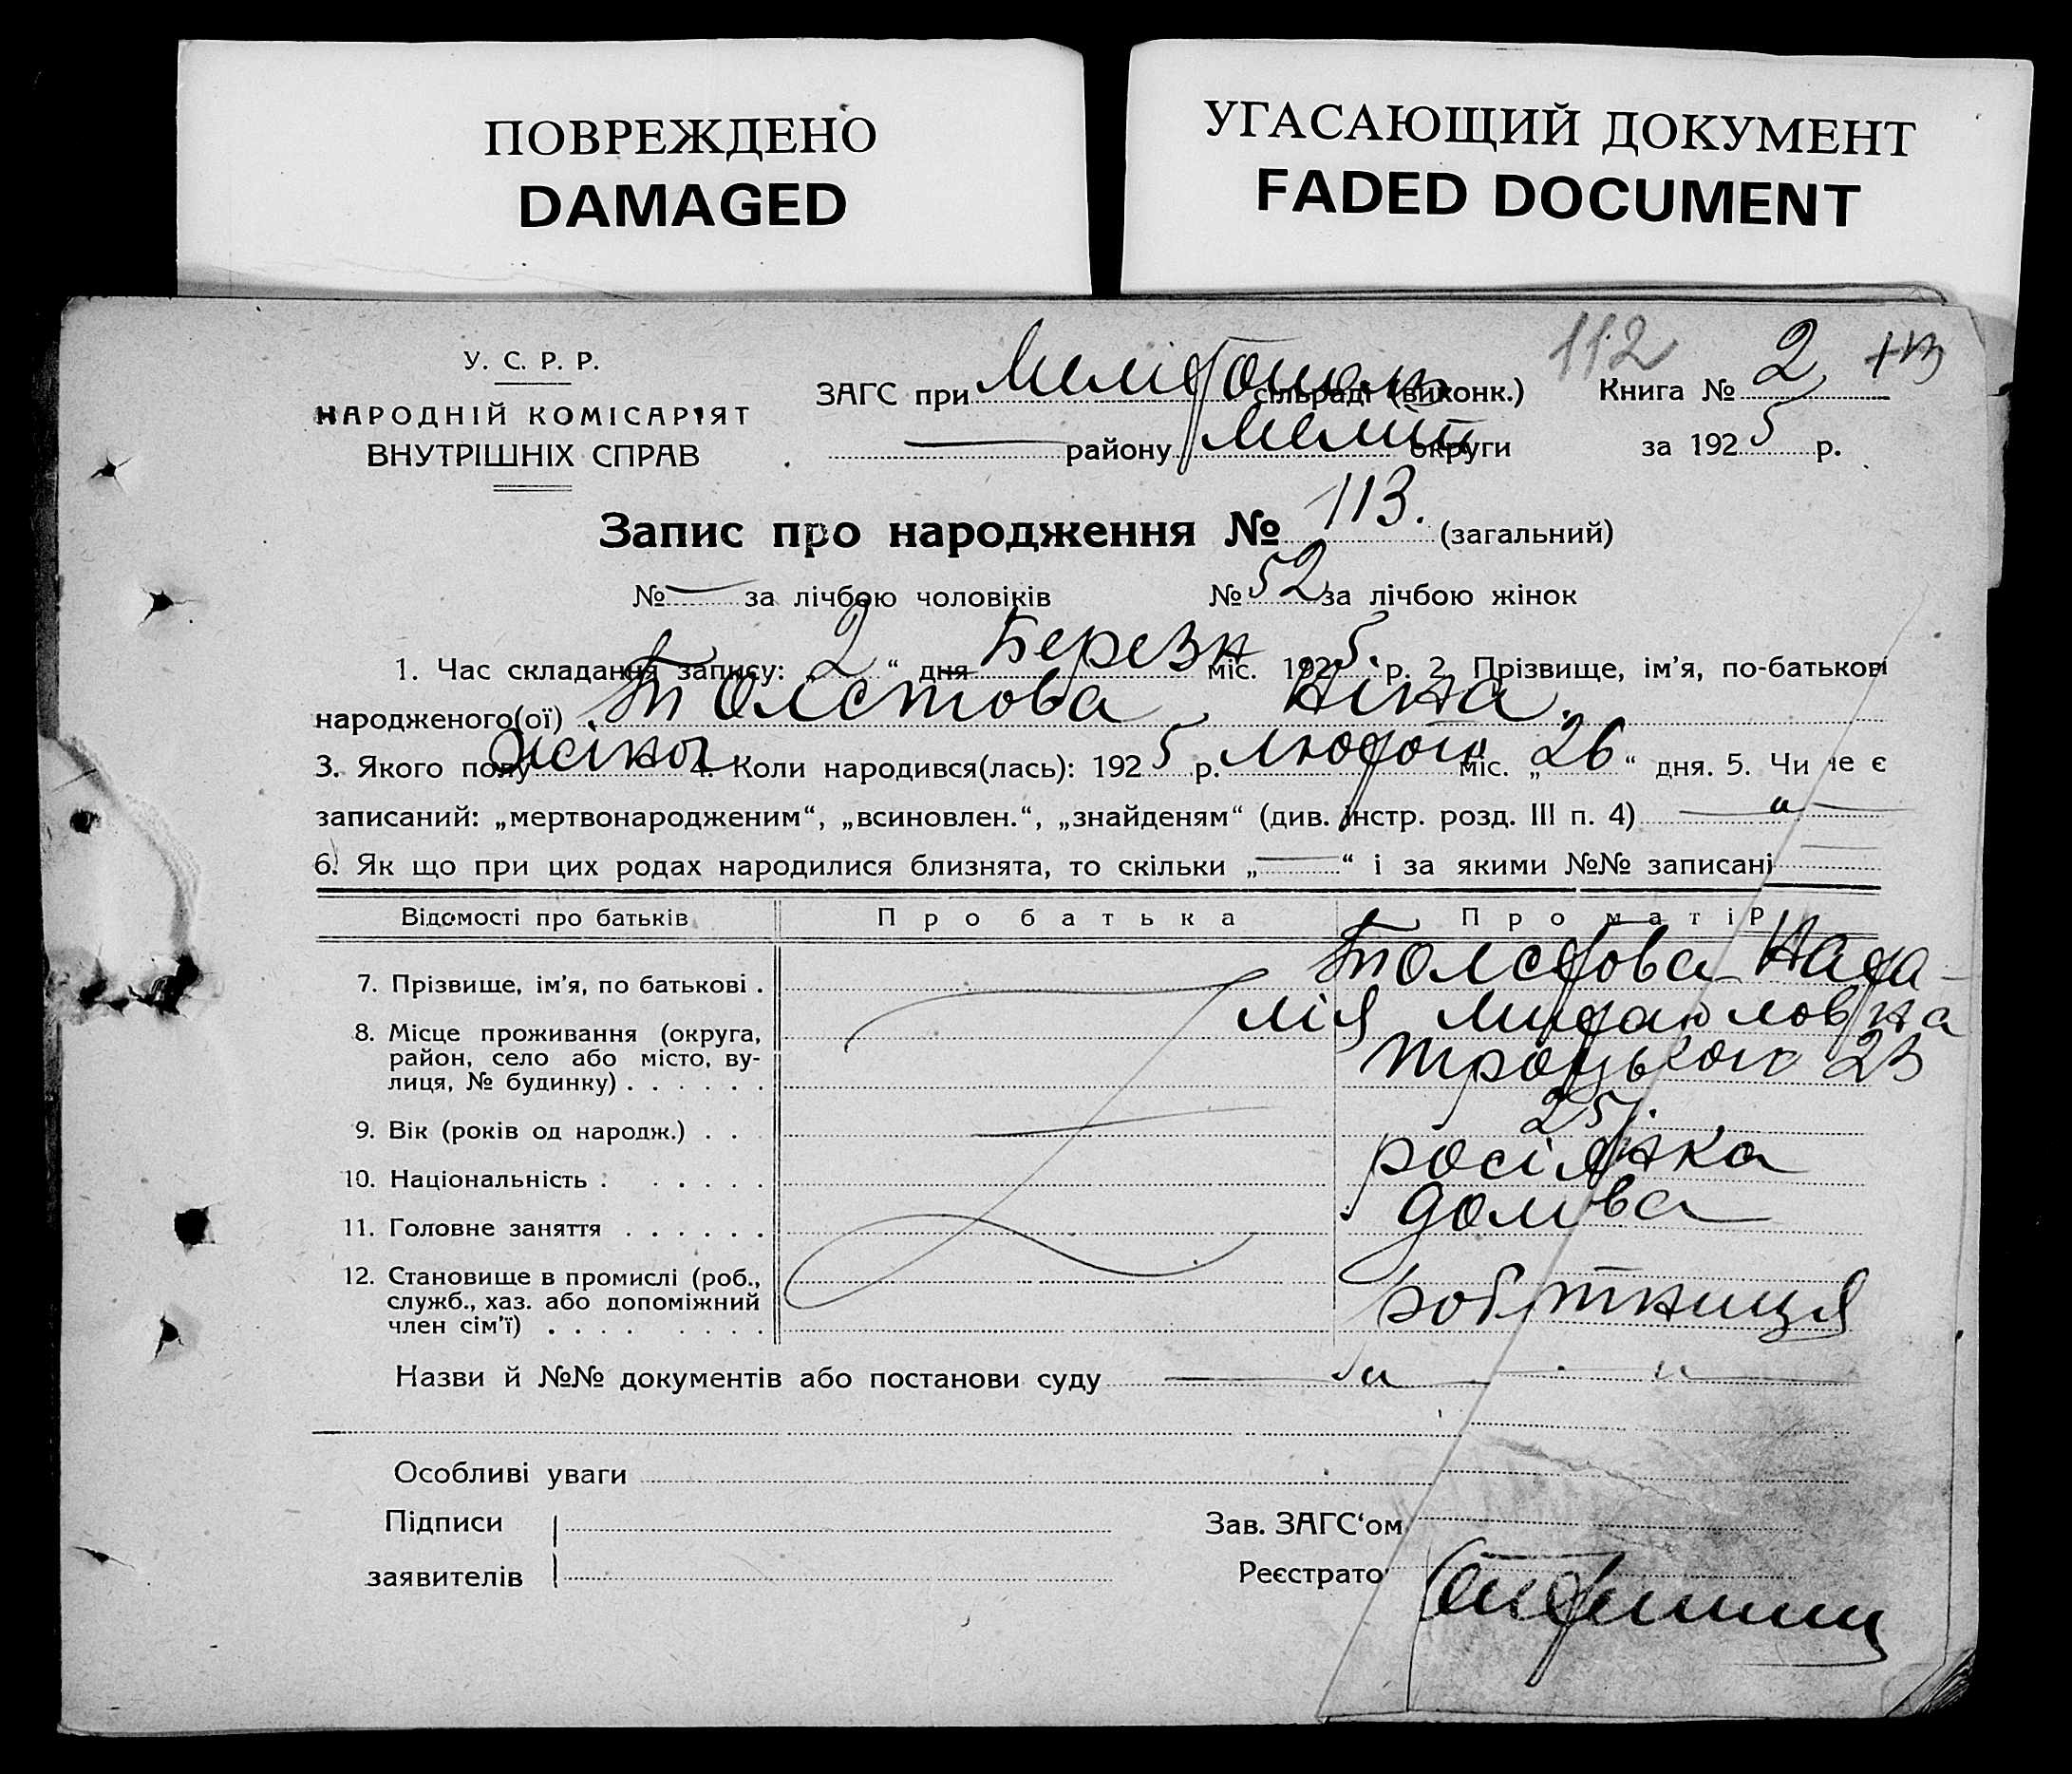 ПОВРЕЖДЕНО
DAMAGED
УГАСАЮЩИЙ ДОКУМЕНТ
FADED DOCUMENT
112
У. С. Р. Р.
НАРОДНІЙ КОМІСАРІЯТ
ВНУТРІШНІХ СПРАВ
ЗАГС при сільраді (виконк.)
району Меліт округи
Книга № 2
за 1925 р.
Запис про народження № 113. (загальний)
№ — за лічбою чоловіків № 52 за лічбою жінок
1. Час складання запису: „2“ дня Березн міс. 1925 р. 2. Прізвище, ім'я, по-батькові
народженого(ої) Толстова Ніна
3. Якого полу жіноч 4. Коли народився(лась): 1925 р. лютого міс. „26“ дня. 5. Чи не є
записаний: „мертвонародженим“, „всиновлен.“, „знайденям“ (див. інстр. розд. III п. 4) — „ —
6. Як що при цих родах народилися близнята, то скільки „—“ і за якими №№ записані —
Відомості про батьків Про батька Про матір
7. Прізвище, ім'я, по батькові . Толстова Ната-
лія Михайловна
8. Місце проживання (округа,
район, село або місто, ву-
лиця, № будинку) . . . . . . Троцького 23
9. Вік (років од народж.) . . . 25 р.
10. Національність . . . . . . росіянка
11. Головне заняття . . . . . .
12. Становище в промислі (роб.,
служб., хаз. або допоміжний
член сім'ї) . . . . . . . . робітниця
Назви й №№ документів або постанови суду — „ — „ —
Особливі уваги
Підписи
заявителів
Зав. ЗАГС'ом
Реєстрато